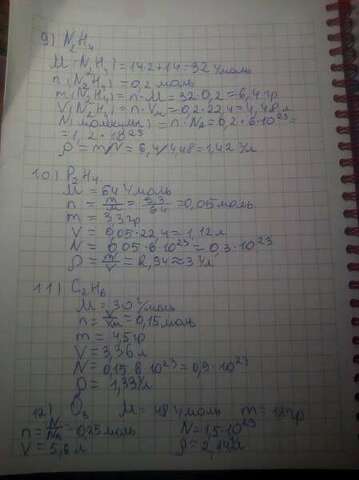 9) N₂H₄
M(N₂H₄)=14·2+1·4=32 г/моль
n(N₂H₄)=0,2 моль
m(N₂H₄)=n·M=32·0,2=6,4 гр
V(N₂H₄)=n·Vm=0,2·22,4=4,48 л
N(молекулы)=n·Na=0,2·6·10²³=
=1,2·10²³
ρ=m/V=6,4/4,48=1,42 г/л
10) P₂H₄
M=64 г/моль
n=m/M=3,3/64=0,05 моль
m=3,3 гр
V=0,05·22,4=1,12 л
N=0,05·6·10²³=0,3·10²³
ρ=m/V=2,94≈3 г/л
11) C₂H₆
M=30 г/моль
n=V/Vm=0,15 моль
m=4,5 гр
V=3,36 л
N=0,15·6·10²³=0,9·10²³
ρ=1,33 г/л
12) O₃ M=48 г/моль m=12 гр
n=N/Na=0,25 моль N=1,5·10²³
V=5,6 л ρ=2,14 г/л